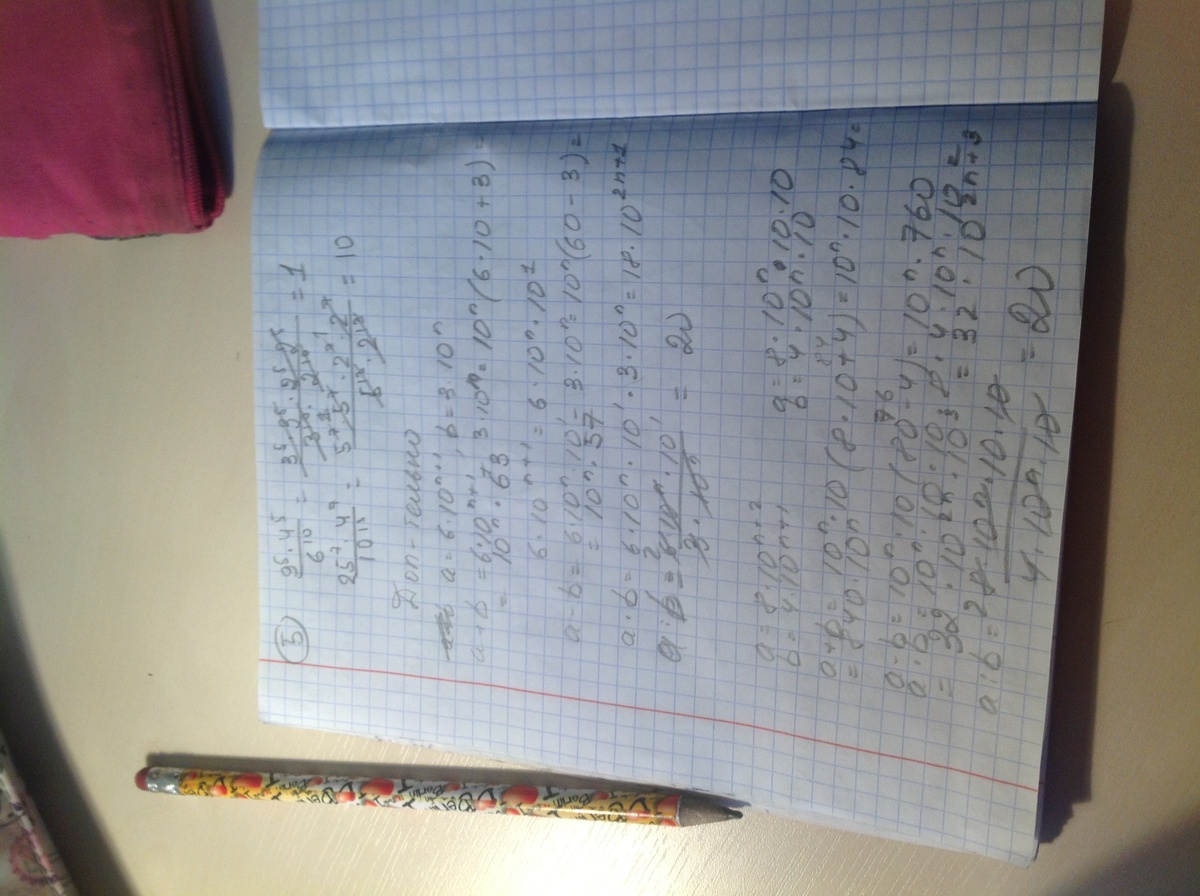 ⑤ 9⁵·4⁵/6¹⁰ = 3⁵·3⁵·2⁵·2⁵/3¹⁰·2¹⁰ = 1
25⁷·4⁷/10¹¹ = 5⁷·5⁷·2⁷·2⁷ = 10
Доп-тельно
a=6·10ⁿ⁺¹, b=3·10ⁿ
a+b=6·10ⁿ⁺¹+3·10ⁿ=10ⁿ(6·10+3)=
=10ⁿ·63
6·10ⁿ⁺¹=6·10ⁿ·10¹
a-b=6·10ⁿ·10¹-3·10ⁿ=10ⁿ(60-3)=
=10ⁿ·57
a·b=6·10ⁿ·10¹·3·10ⁿ=18·10²ⁿ⁺¹
a:b=6·10ⁿ·10¹/3·10ⁿ = 20
a=8·10ⁿ⁺² a=8·10ⁿ·10·10
b=4·10ⁿ⁺¹ b=4·10ⁿ·10
a+b=10ⁿ·10(8·10+4)=10ⁿ·10·84=
=840·10ⁿ
a-b=10ⁿ·10(80-4)=10ⁿ·760
a·b=10ⁿ·10·10·8·4·10ⁿ·10
=32·10²ⁿ·10³=32·10²ⁿ⁺³
a:b=8·10ⁿ·10·10/4·10ⁿ·10 = 20
Berlin